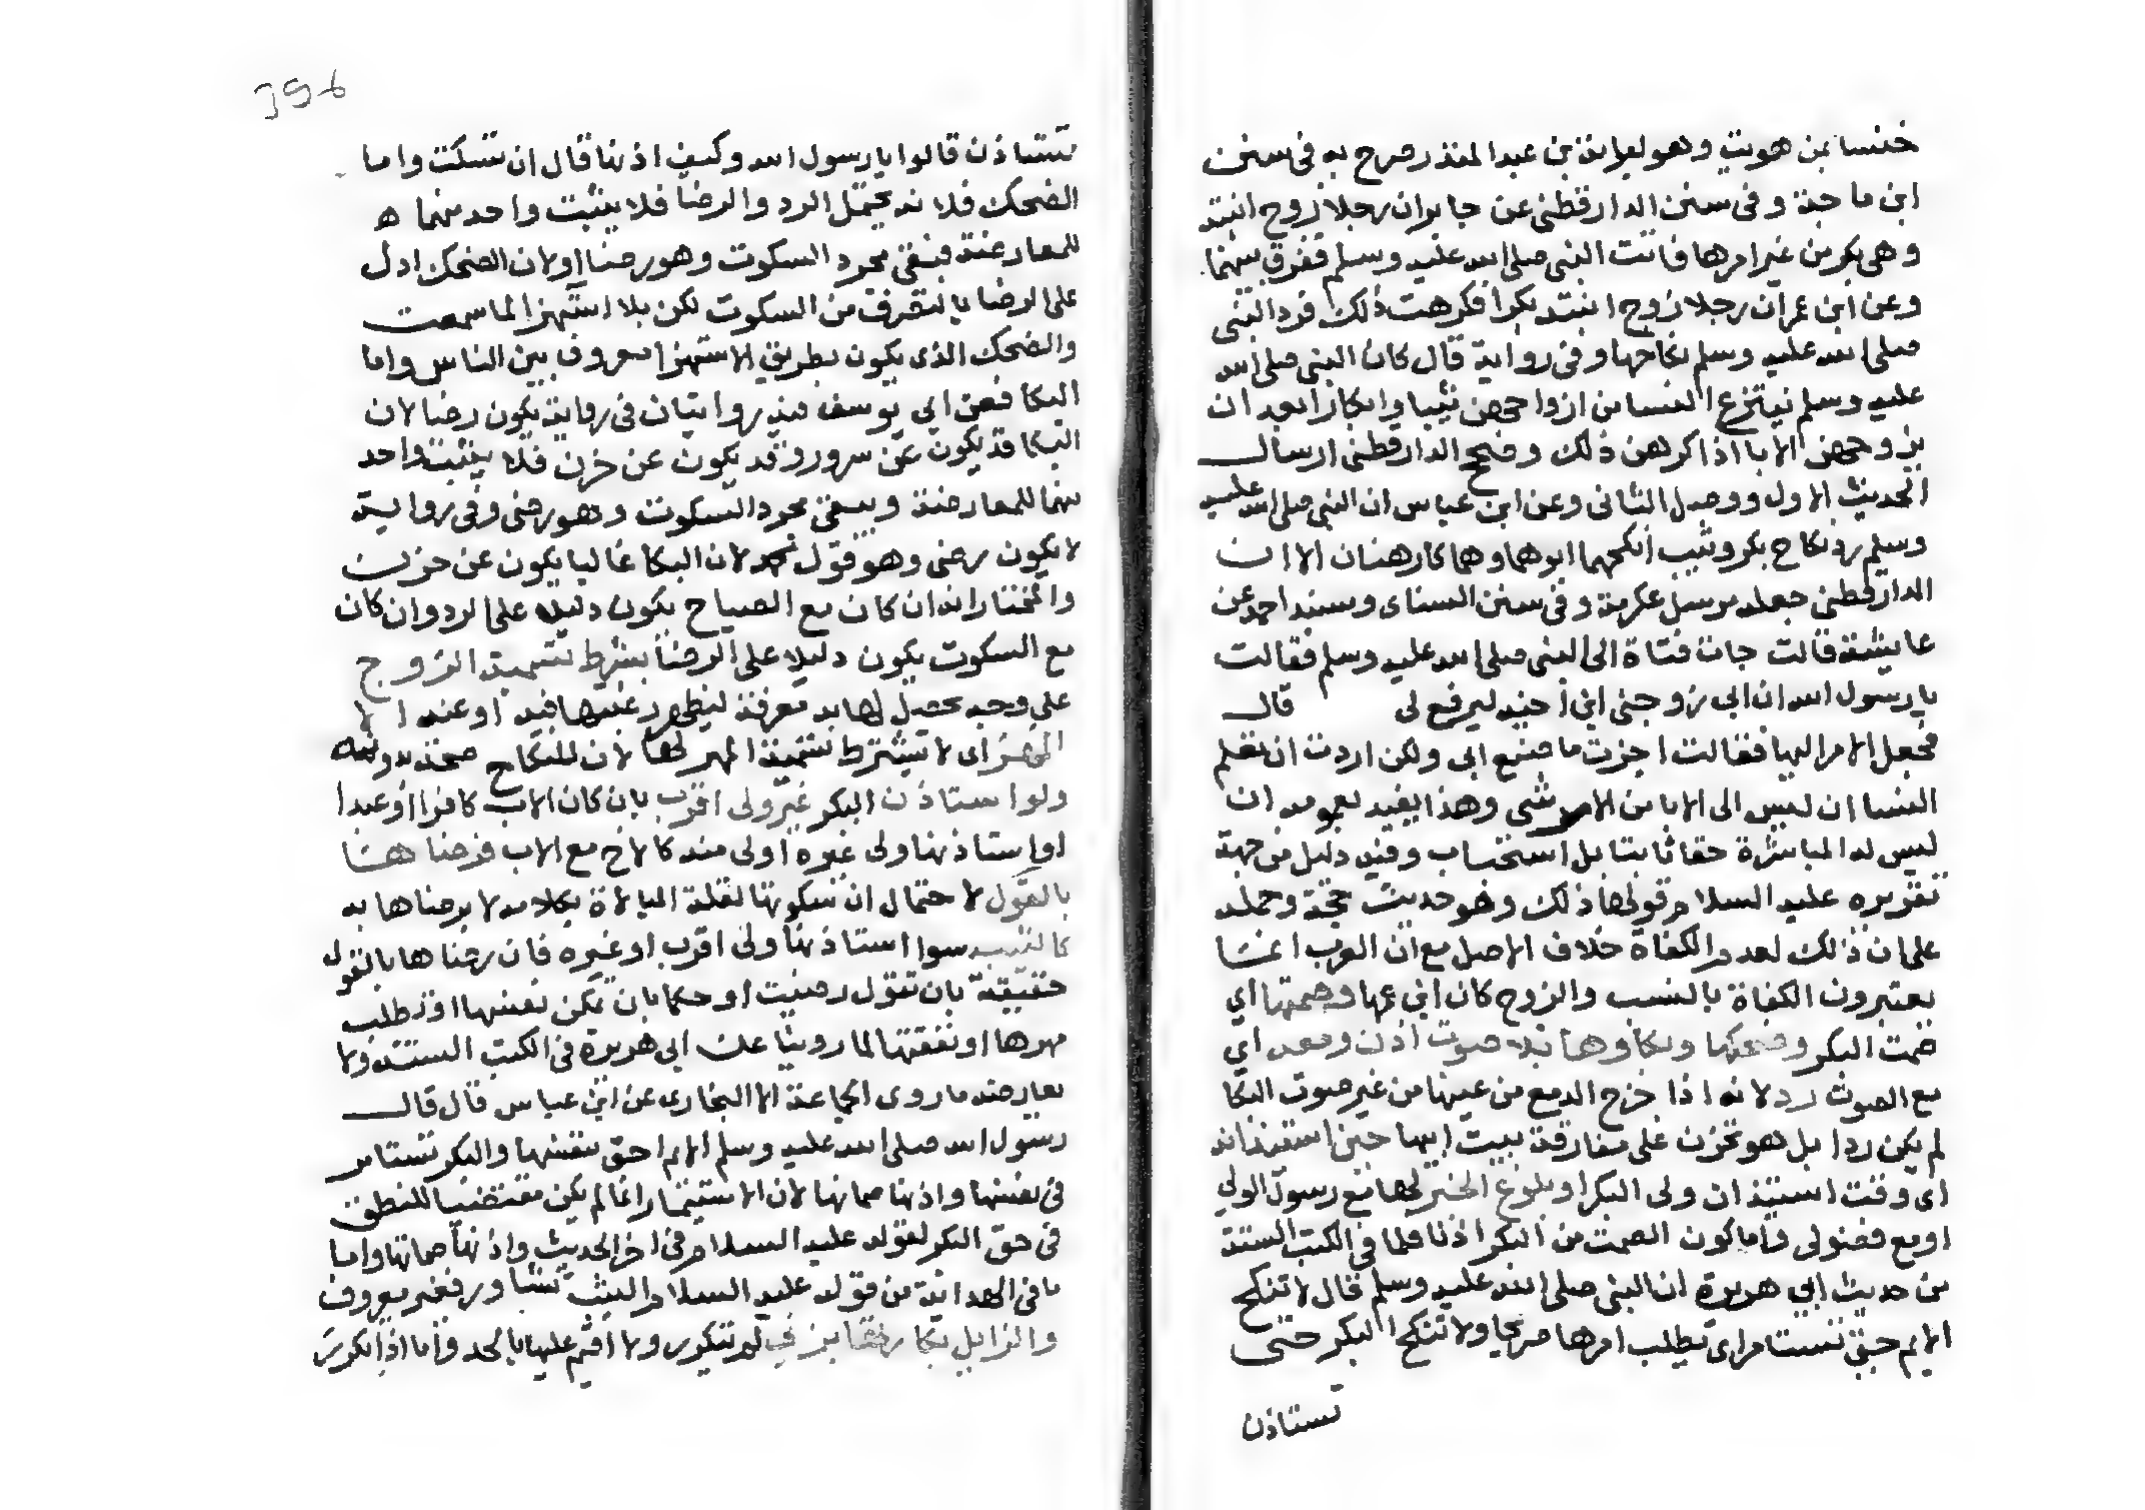 خنسا من هويت وهو لبابة بن عبد المنذر صرح به في سنن
ابن ماجة وفي سنن الدارقطني عن جابر ان رجلا زوج ابنته
وهي بكر من غير امرها فاتت النبي صلى الله عليه وسلم ففرق بينهما
وعن ابن عمر ان رجلا زوج ابنته بكرا فكرهت ذلك فرد النبي
صلى الله عليه وسلم نكاحها وفي رواية قال كان النبي صلى الله
عليه وسلم ينتزع النسا من ازواجهن ثيبا وابكارا بعد ان
يزوجهن الابا اذا كرهن ذلك وصحح الدارقطني ارسال
الحديث الاول ووصل الثاني وعن ابن عباس ان النبي صلى الله عليه
وسلم رد نكاح بكر وثيب انكحهما ابوهما وهما كارهتان الا ان
الدارقطني جعله مرسل عكرمة وفي سنن النساى ومسند احمد عن
عايشة قالت جات فتاة الى النبي صلى الله عليه وسلم فقالت
يا رسول الله ان ابي زوجني ابن اخيه ليرفع لي قال
فجعل الامر اليها فقالت اجزت ما صنع ابي ولكن اردت ان تعلم
النسا ان ليس الى الابا من الامر شي وهذا يفيد بعمومه ان
ليس له المباشرة حقا ثابتا بل استحباب وفيه دليل من جهة
تقريره عليه السلام قولها ذلك وهو حديث حجة وحمله
على ان ذلك لعدم الكفاة خلاف الاصل مع ان العرب انما
يعتبرون الكفاة بالنسب والزوج كان ابن عمها وصمتها اي
صمت البكر وضحكها وبكاوها بلا صوت اذن ومعه اي
مع الصوت رد لانه اذا خرج الدمع من عينها من غير صوت البكا
لم يكن ردا بل هو تحزن على مفارقة بيت ابيها حين استيذانه
اى وقت استيذان ولى البكر او بلوغ الخبر لها مع رسول الولي
او مع فضولى واما كون الصمت من البكر اذنا فلما في الكتب الستة
من حديث ابي هريرة ان النبي صلى الله عليه وسلم قال لا تنكح
الايم حتى تستامر اى يطلب امرها صريحا ولا تنكح البكر حتى
تستاذن
396
تستاذن قالوا يا رسول الله وكيف اذنها قال ان تسكت واما
الضحك فلانه يحتمل الرد والرضا فلا يثبت واحد منهما ه
للمعارضة فبقى مجرد السكوت وهو رضا اولان الضحك ادل
على الرضا بالتصرف من السكوت لكن بلا استهزا لما سمعت
والضحك الذى يكون بطريق الاستهزا معروف بين الناس واما
البكا فعن ابي يوسف فيه روايتان في رواية يكون رضا لان
البكا قد يكون عن سرور وقد يكون عن حزن فلا يثبت واحد
منهما للمعارضة ويبقى مجرد السكوت وهو رضى وفي رواية
لا يكون رضى وهو قول محمد لان البكا غالبا يكون عن حزن
والمختار انه ان كان مع الصياح يكون دليلا على الرد وان كان
مع السكوت يكون دليلا على الرضا بشرط تسمية الزوج
على وجه يحصل لها به معرفة ليظهر رغبتها فيه او عنه لا
المهر اى لا تشترط تسمية المهر لها لان للنكاح صحة بدونه
ولو استاذن البكر غير ولى اقرب بان كان الاب كافرا او عبدا
او استاذنها ولى غيره اولى منه كالاخ مع الاب فرضا هنا
بالقول لاحتمال ان سكوتها لقلة المبالاة بكلامه لا برضاها به
كالثيب سوا استاذنها ولى اقرب او غيره فان رضاها بالقول
حقيقة بان تقول رضيت او حكما بان تمكن نفسها او تطلب
مهرها او نفقتها لما روينا عن ابي هريرة في الكتب الستة ولا
يعارضه ما روى الجماعة الا البخارى عن ابن عباس قال قال
رسول الله صلى الله عليه وسلم الايم احق بنفسها والبكر تستامر
في نفسها واذنها صماتها لان الاستيمار انما لم يكن مقتضيا للنطق
في حق البكر لقوله عليه السلام في اخر الحديث واذنها صماتها واما
ما في الهداية من قوله عليه السلام الثيب تشاور فغير معروف
والزايل بكارتها بزنى لم تتكرر ولا اقيم عليها بالحد واما اذا تكرر